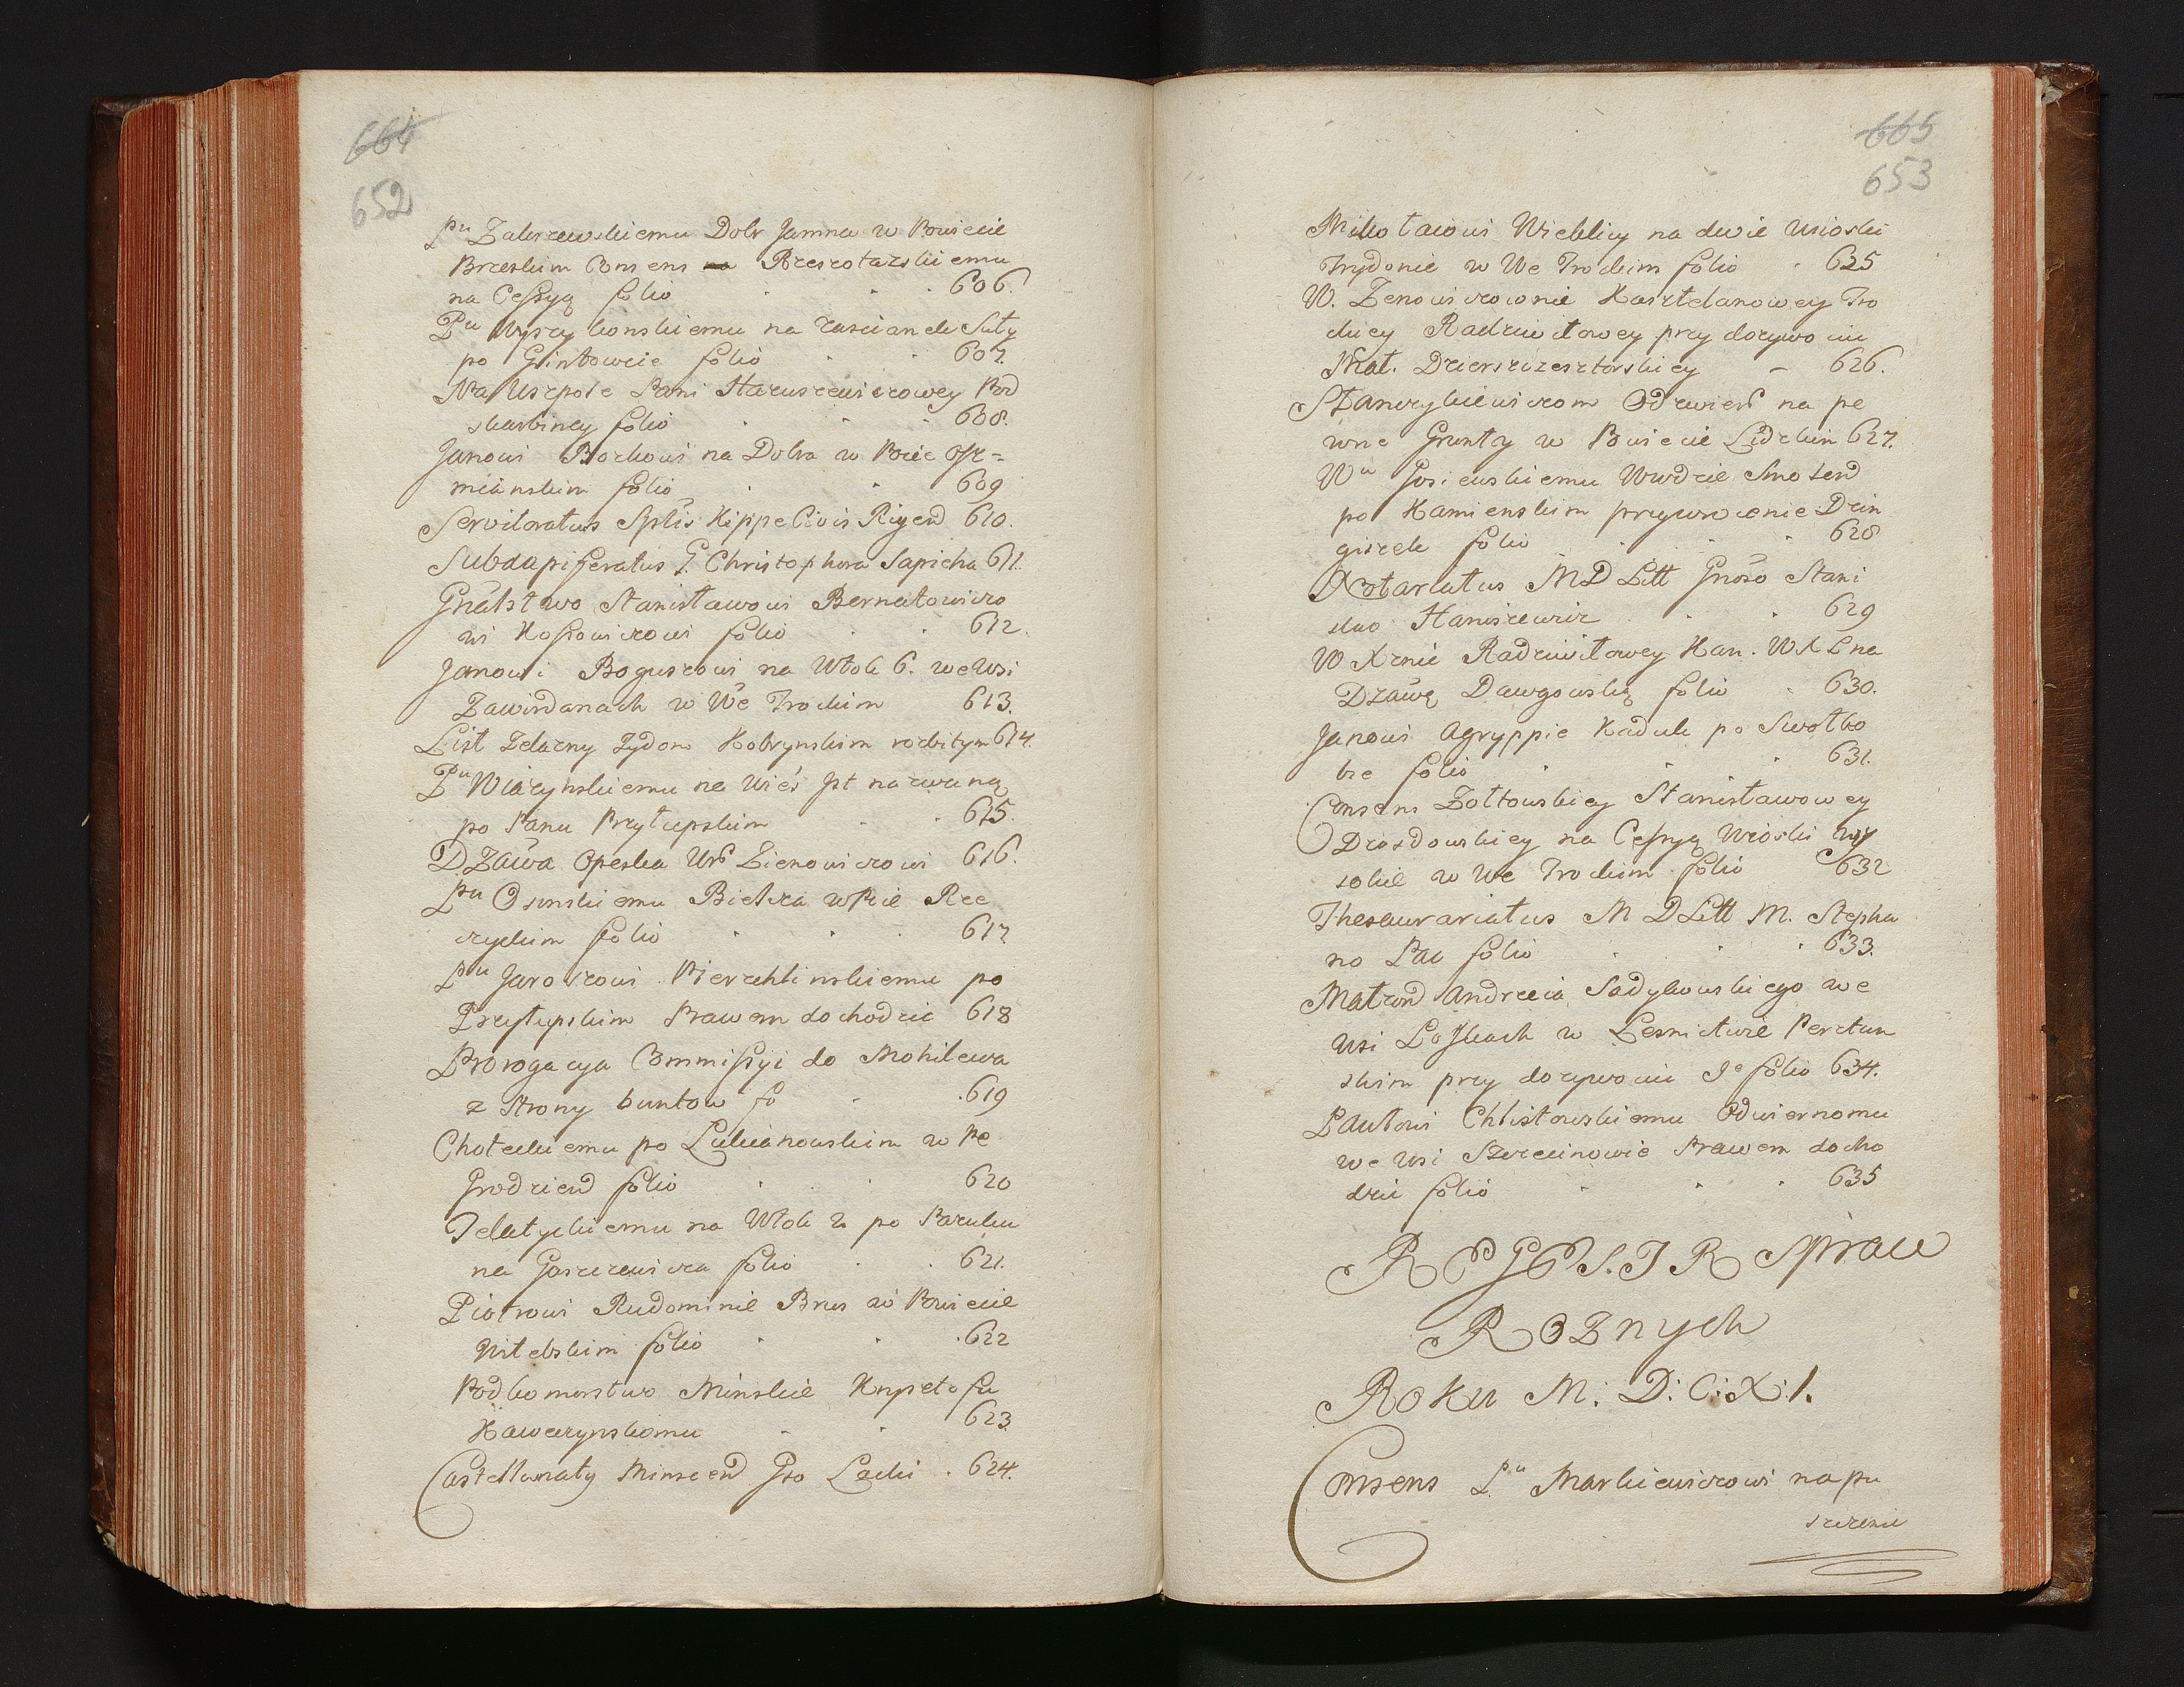 664
652
Pnu Zakrzewskiemu Dobr Jamna w Powiecie
Brzeskim Consens na Rzeszotarskiemu
na Cessyą folio 606.
Pnu Wyszykonskiemu na zascianek Suty
po Gintowcie folio 607.
Na Uszpole Pani Haruszewiczowey Pod
skarbiney folio 608.
Janowi Bockowi na Dobra w Powie Osz=
mianskim folio 609
Servitoratus Spblis Kippe Civis Rigen 610.
Subdapiferatus G. Christophora Sapieha 611.
Gnalstwo Stanisławowi Bernatowiczo
wi Kossowiczowi folio 612.
Janowi Boguszowi na Włok 6. we Wsi
Zawirdanach w We Trockim 613.
List Zelazny Zydom Kobrynskim rozbitym 614.
Pnu Wiazynskiemu na Wieś Jst nazwaną
po Panu Przytupskim 615.
Dzawa Opeska Urd Zienowiczowi 616.
Pnu Osinskiemu Bielica w Pcie Rze
czyckim folio 617
Pnu Jaroszowi Pierzchlinskiemu po
Przytupskim Prawem dochodzic 618
Prorogacya Commissyi do Mohilewa
z Strony buntow fo 619
Choteckiemu po Lukianowskim w Pe
Grodzien folio 620
Teletyckiemu na Włok 2 po
na Gaszczewicza folio 621.
Piotrowi Rudominie Brus w Powiecie
Witebskim folio 622
Podkomorstwo Minskie Krysztofu
Kaweczynskomu 623.
Castellanaty Minscen Gso Lacki . 624.
665
653
Mikołaiowi Wieklicy na dwie Wioski
Trydonie w We Trockim folio 625
W. Zenowiczownie Kasztelanowey Tro
ckiey Radziwiłowey przy dozywociu
Mał. Dzierszczesztorskiey – 626.
Stanczykiewiczom Odzwierd na pe
wne Grunty w Powiecie Lidzkim 627.
Wu Gosiewskiemu Wwdzie Smolend
po Kamienskim przywrocenie Dzin
giszek folio 628
Notariatus MD Litt Gnoso Stani
slao Haniszewicz 629
W Xznie Radziwiłowey Kan. WXL na
Dzawę Dawgowską folio 630.
Janowi Agryppie Kaduk po Swołko
bie folio 631.
Consens Zołtowskiey Stanisławowey
Drozdowskiey na Cessyą Wioski wy
sokie w We Trockim folio 632
Thesaurariatus M D Litt M. Stepha
no Pac folio 633.
Małzond Andrzeia Sadykowskiego we
Wsi Łojbach w Lesnictwie Perstun
skim przy dozywociu go folio 634.
Pawłowi Chlistowskiemu Odwiernomu
we Wsi Szczecinowie Prawem docho
dzic folio 635
REGESTR Spraw
ROZnych
Roku M: D: C: X: I.
Consens P.u Markiewiczowi na pu
szczenie